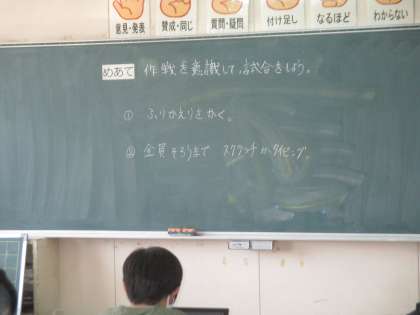 意見・発表
賛成・同じ
質問・疑問
付け足し
なるほど
わからない
めあて 作戦を意識して、試合をしよう。
① ふりかえりをかく。
② 全員そろうまで スクラッチかタイピング。